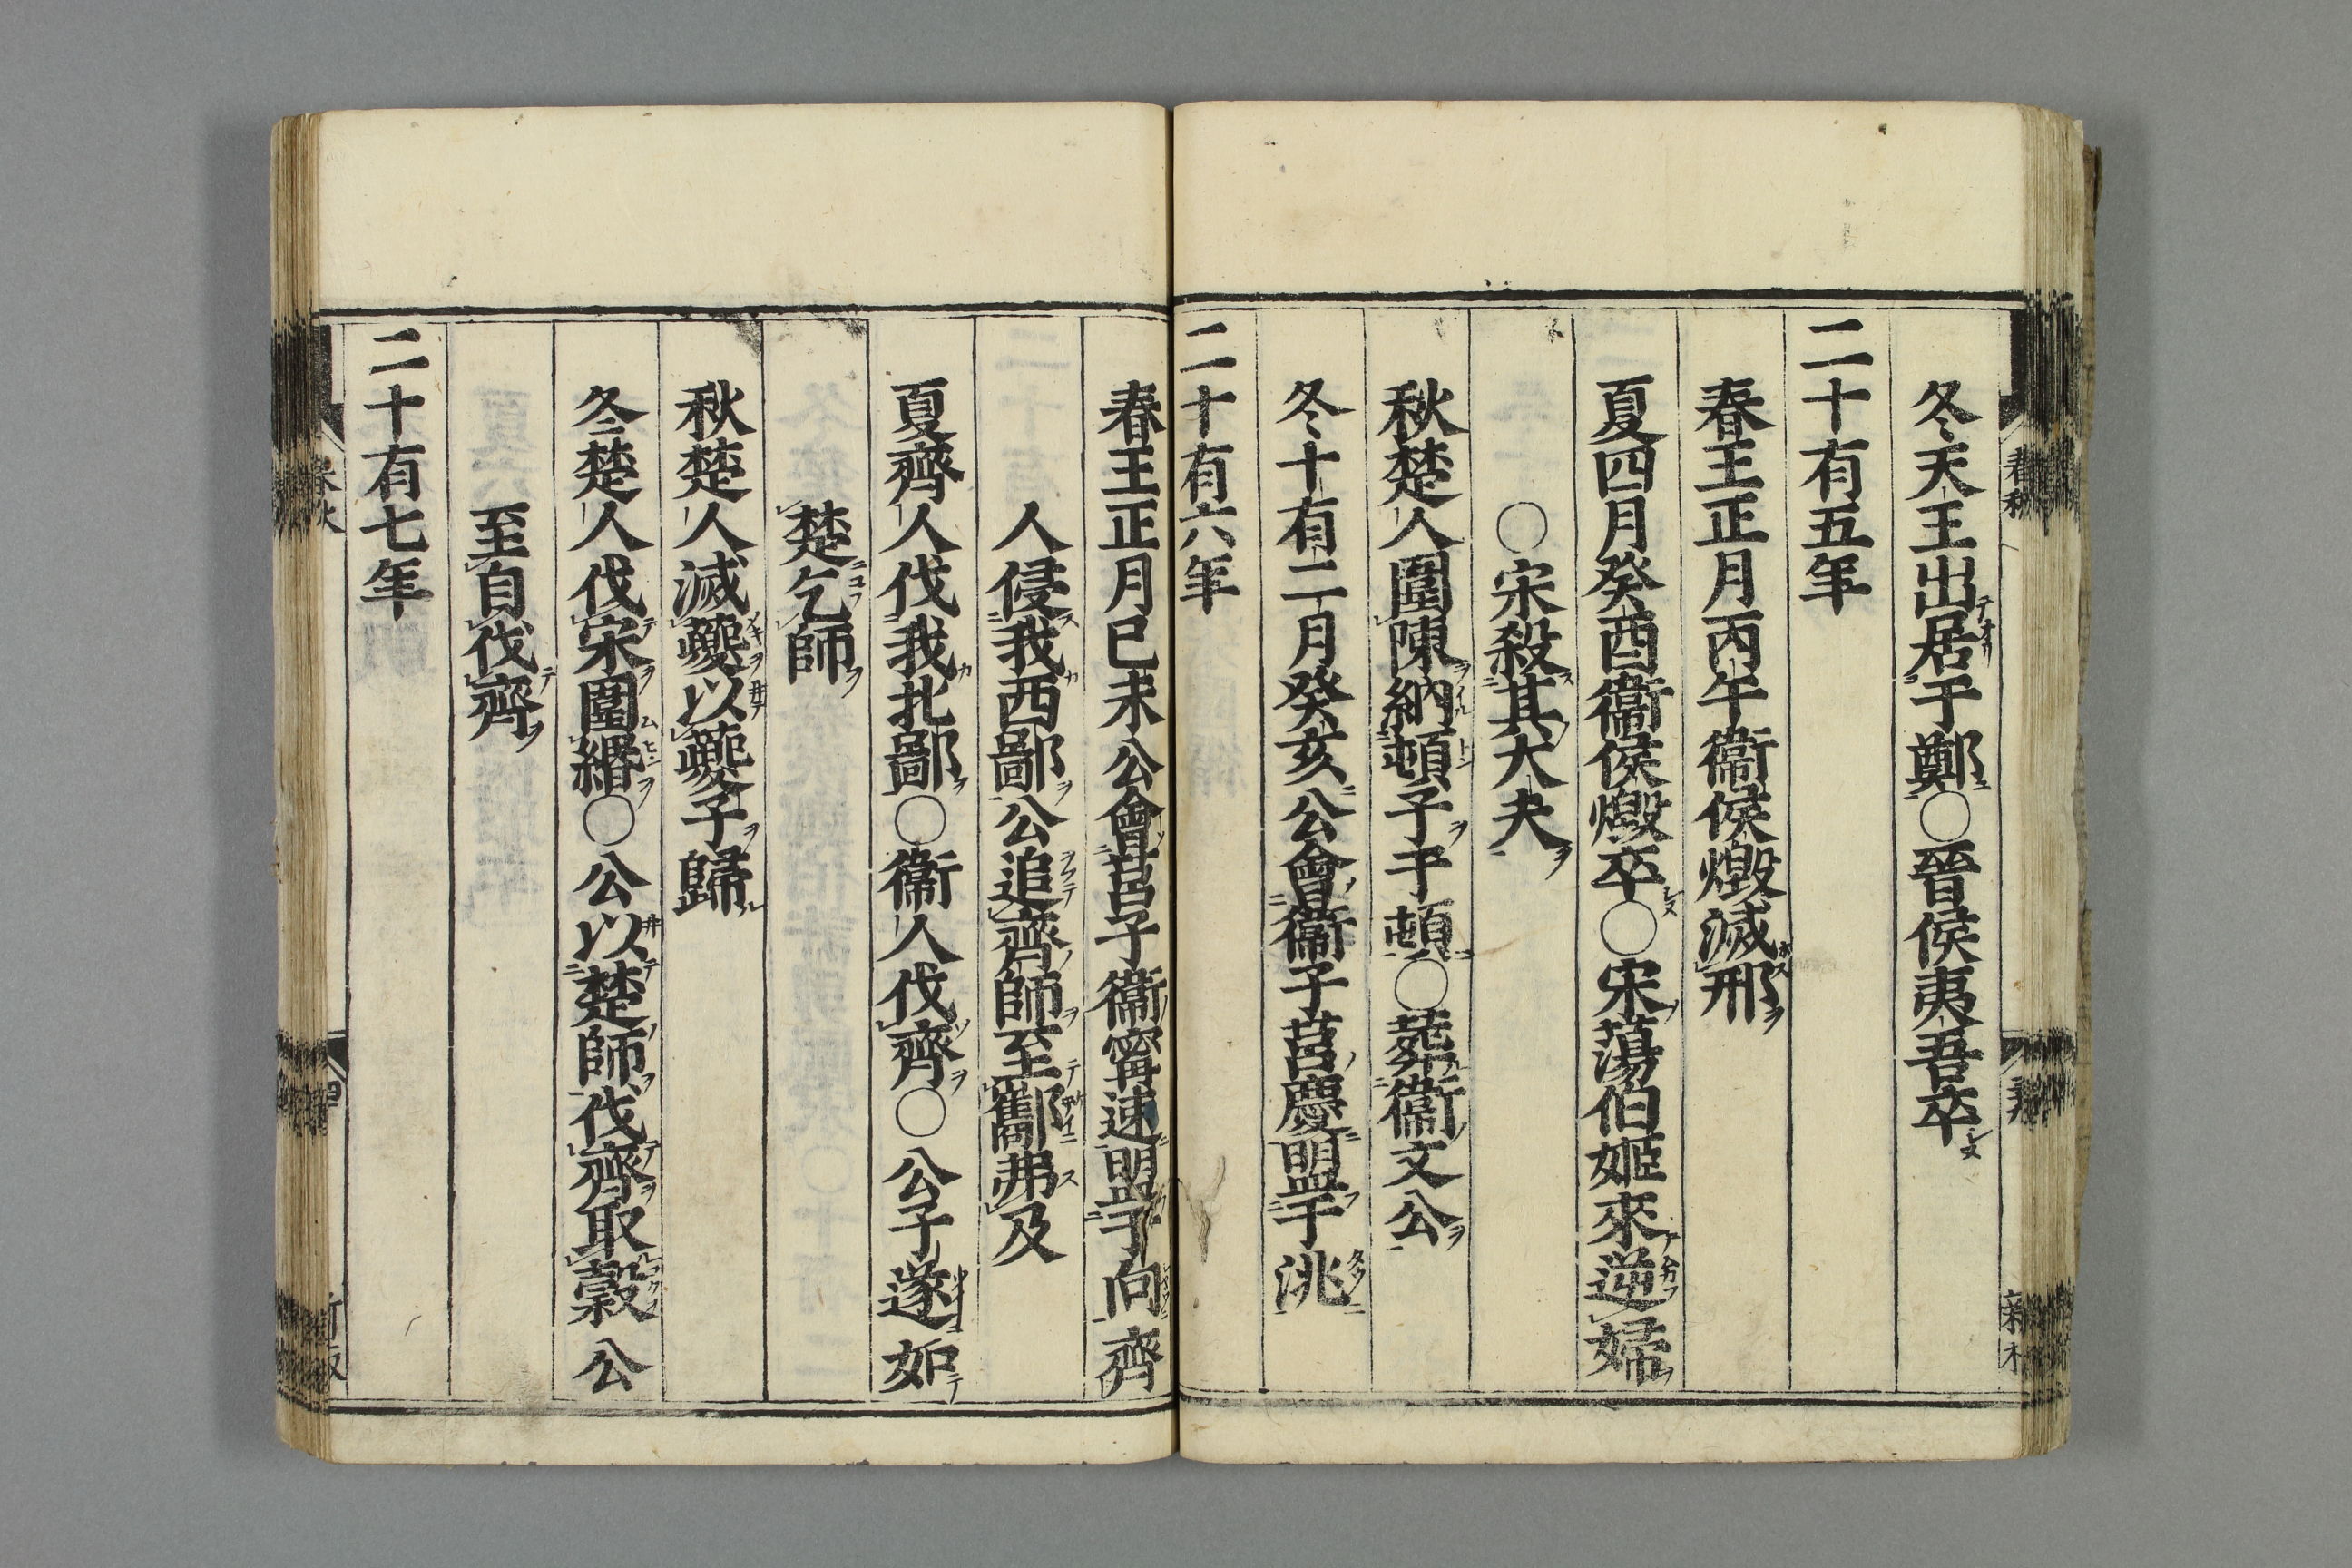 冬天王出居于鄭○晉侯夷吾卒
二十有五年
春王正月丙午衞侯燬滅邢
夏四月癸酉衞侯燬卒○宋蕩伯姬來逆婦
○宋殺其大夫
秋楚人圍陳納頓子于頓○葬衞文公
冬十有二月癸亥公會衞子莒慶盟于洮
二十有六年
春王正月己未公會莒子衞甯速盟于向齊
人侵我西鄙公追齊師至酅弗及
夏齊人伐我北鄙○衞人伐齊○公子遂如
楚乞師
秋楚人滅夔以夔子歸
冬楚人伐宋圍緡○公以楚師伐齊取穀公
至自伐齊
二十有七年